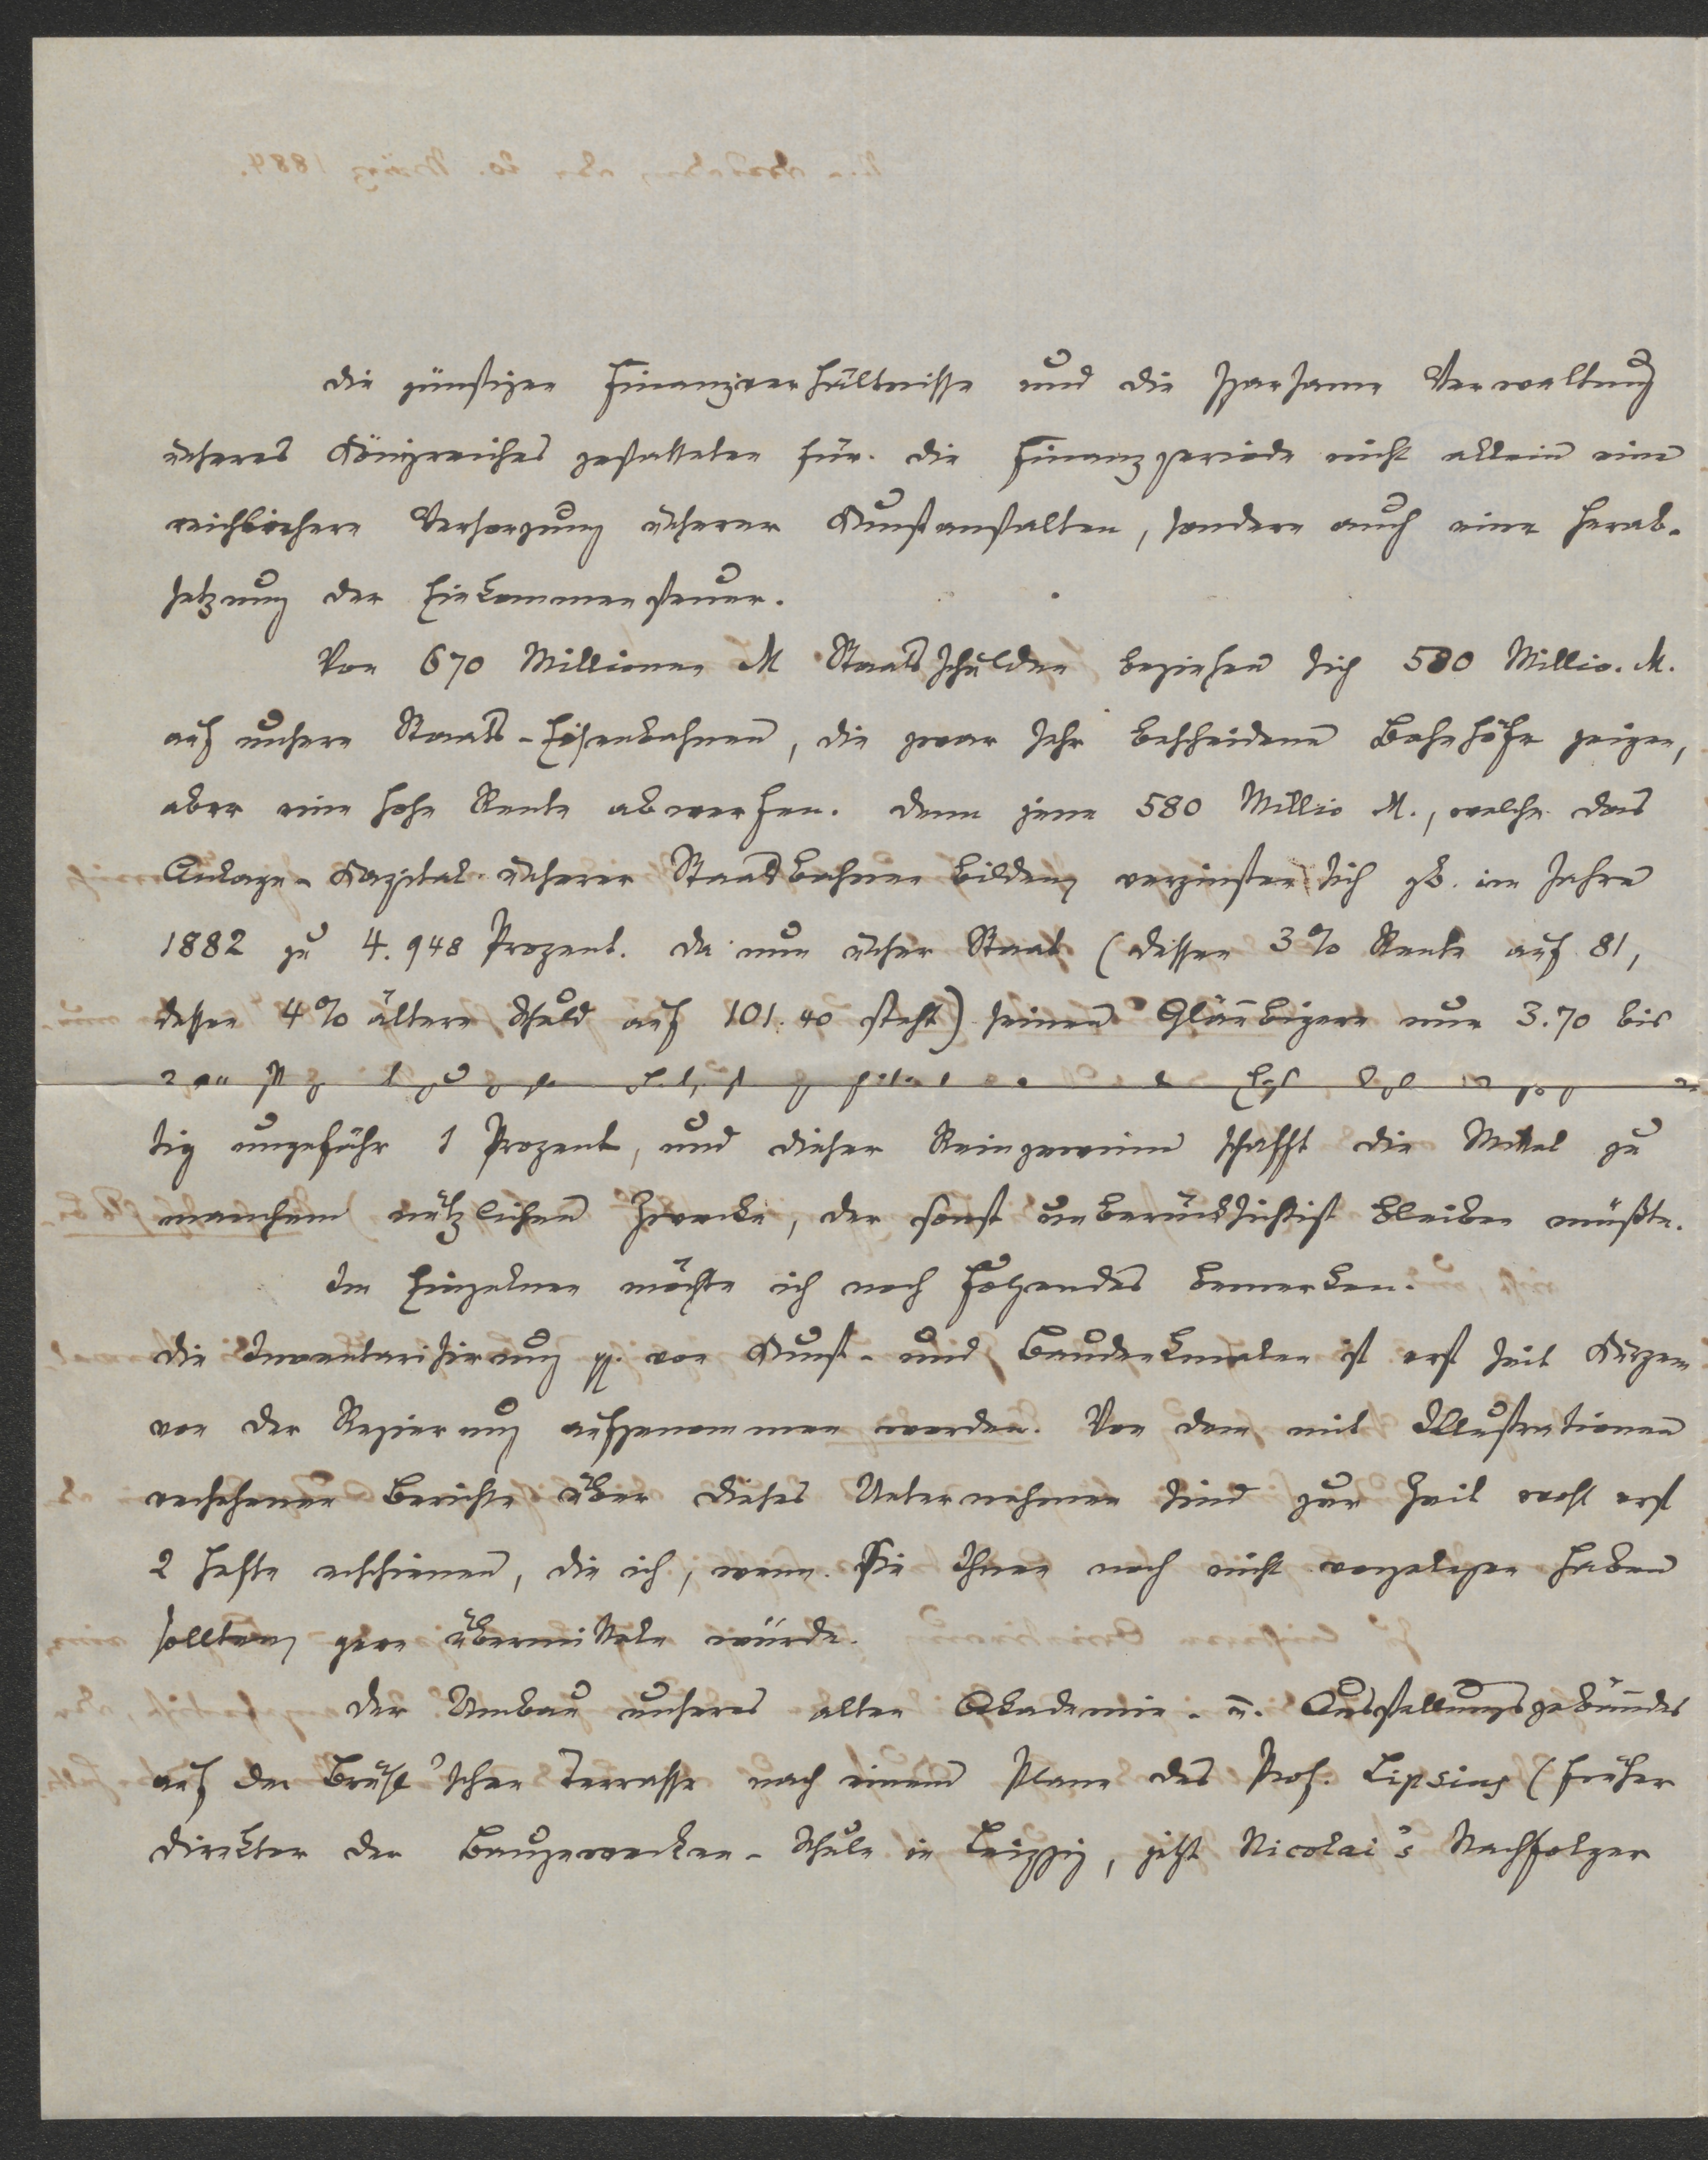 Die günstigen Finanzverhältnisse und die sparsame Verwaltung
unseres Königreiches gestatteten für die Finanzperiode nicht allein eine
reichlichere Versorgung unserer Kunstanstalten, sondern auch eine Herab-
setzung der Einkommensteuer.
Von 670 Millionen M Staatsschulden beziehen sich 580 Millio. M.
auf unsere Staats-Eisenbahnen, die zwar sehr bescheidene Bahnhöfe zeigen,
aber eine hohe Rente abwerfen. Denn jene 580 Millio M., welche das
Anlage-Kapital unserer Staatsbahnen bilden, verzinsten sich zB. im Jahre
1882 zu 4.948 Prozent. Da nun unser Staat (dessen 3% Rente auf 81,
dessen 4% ältere Schuld auf 101.40 steht) seinen Gläubigern nur 3.70 bis
tig ungefähr 1 Prozent, und dieser Reingewinn schafft die Mittel zu
manchem nützlichen Zwecke, der sonst unberücksichtigt bleiben müßte.
Im Einzelnen möchte ich noch Folgendes bemerken.
Die Inventarisirung pp. von Kunst- und Baudenkmalen ist erst seit Kurzem
von der Regierung aufgenommen worden. Von dem mit Illustrationen
versehenen Berichte über dieses Unternehmen sind zur Zeit wohl erst
2 Hefte erschienen, die ich, wenn Sie Ihnen noch nicht vorgelegen haben
sollten, gern übermitteln würde.
Der Umbau unseres alten Akademie- u. Ausstellungsgebäudes
auf der Brühl'schen Terrasse nach einem Plane des Prof. Lipsius (früher
Direktor der Baugewerken-Schule in Leipzig, jetzt Nicolai's Nachfolger